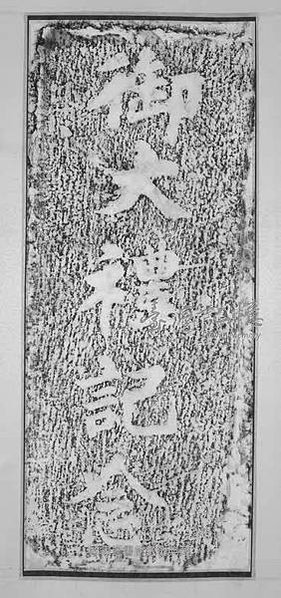 御大禮記念